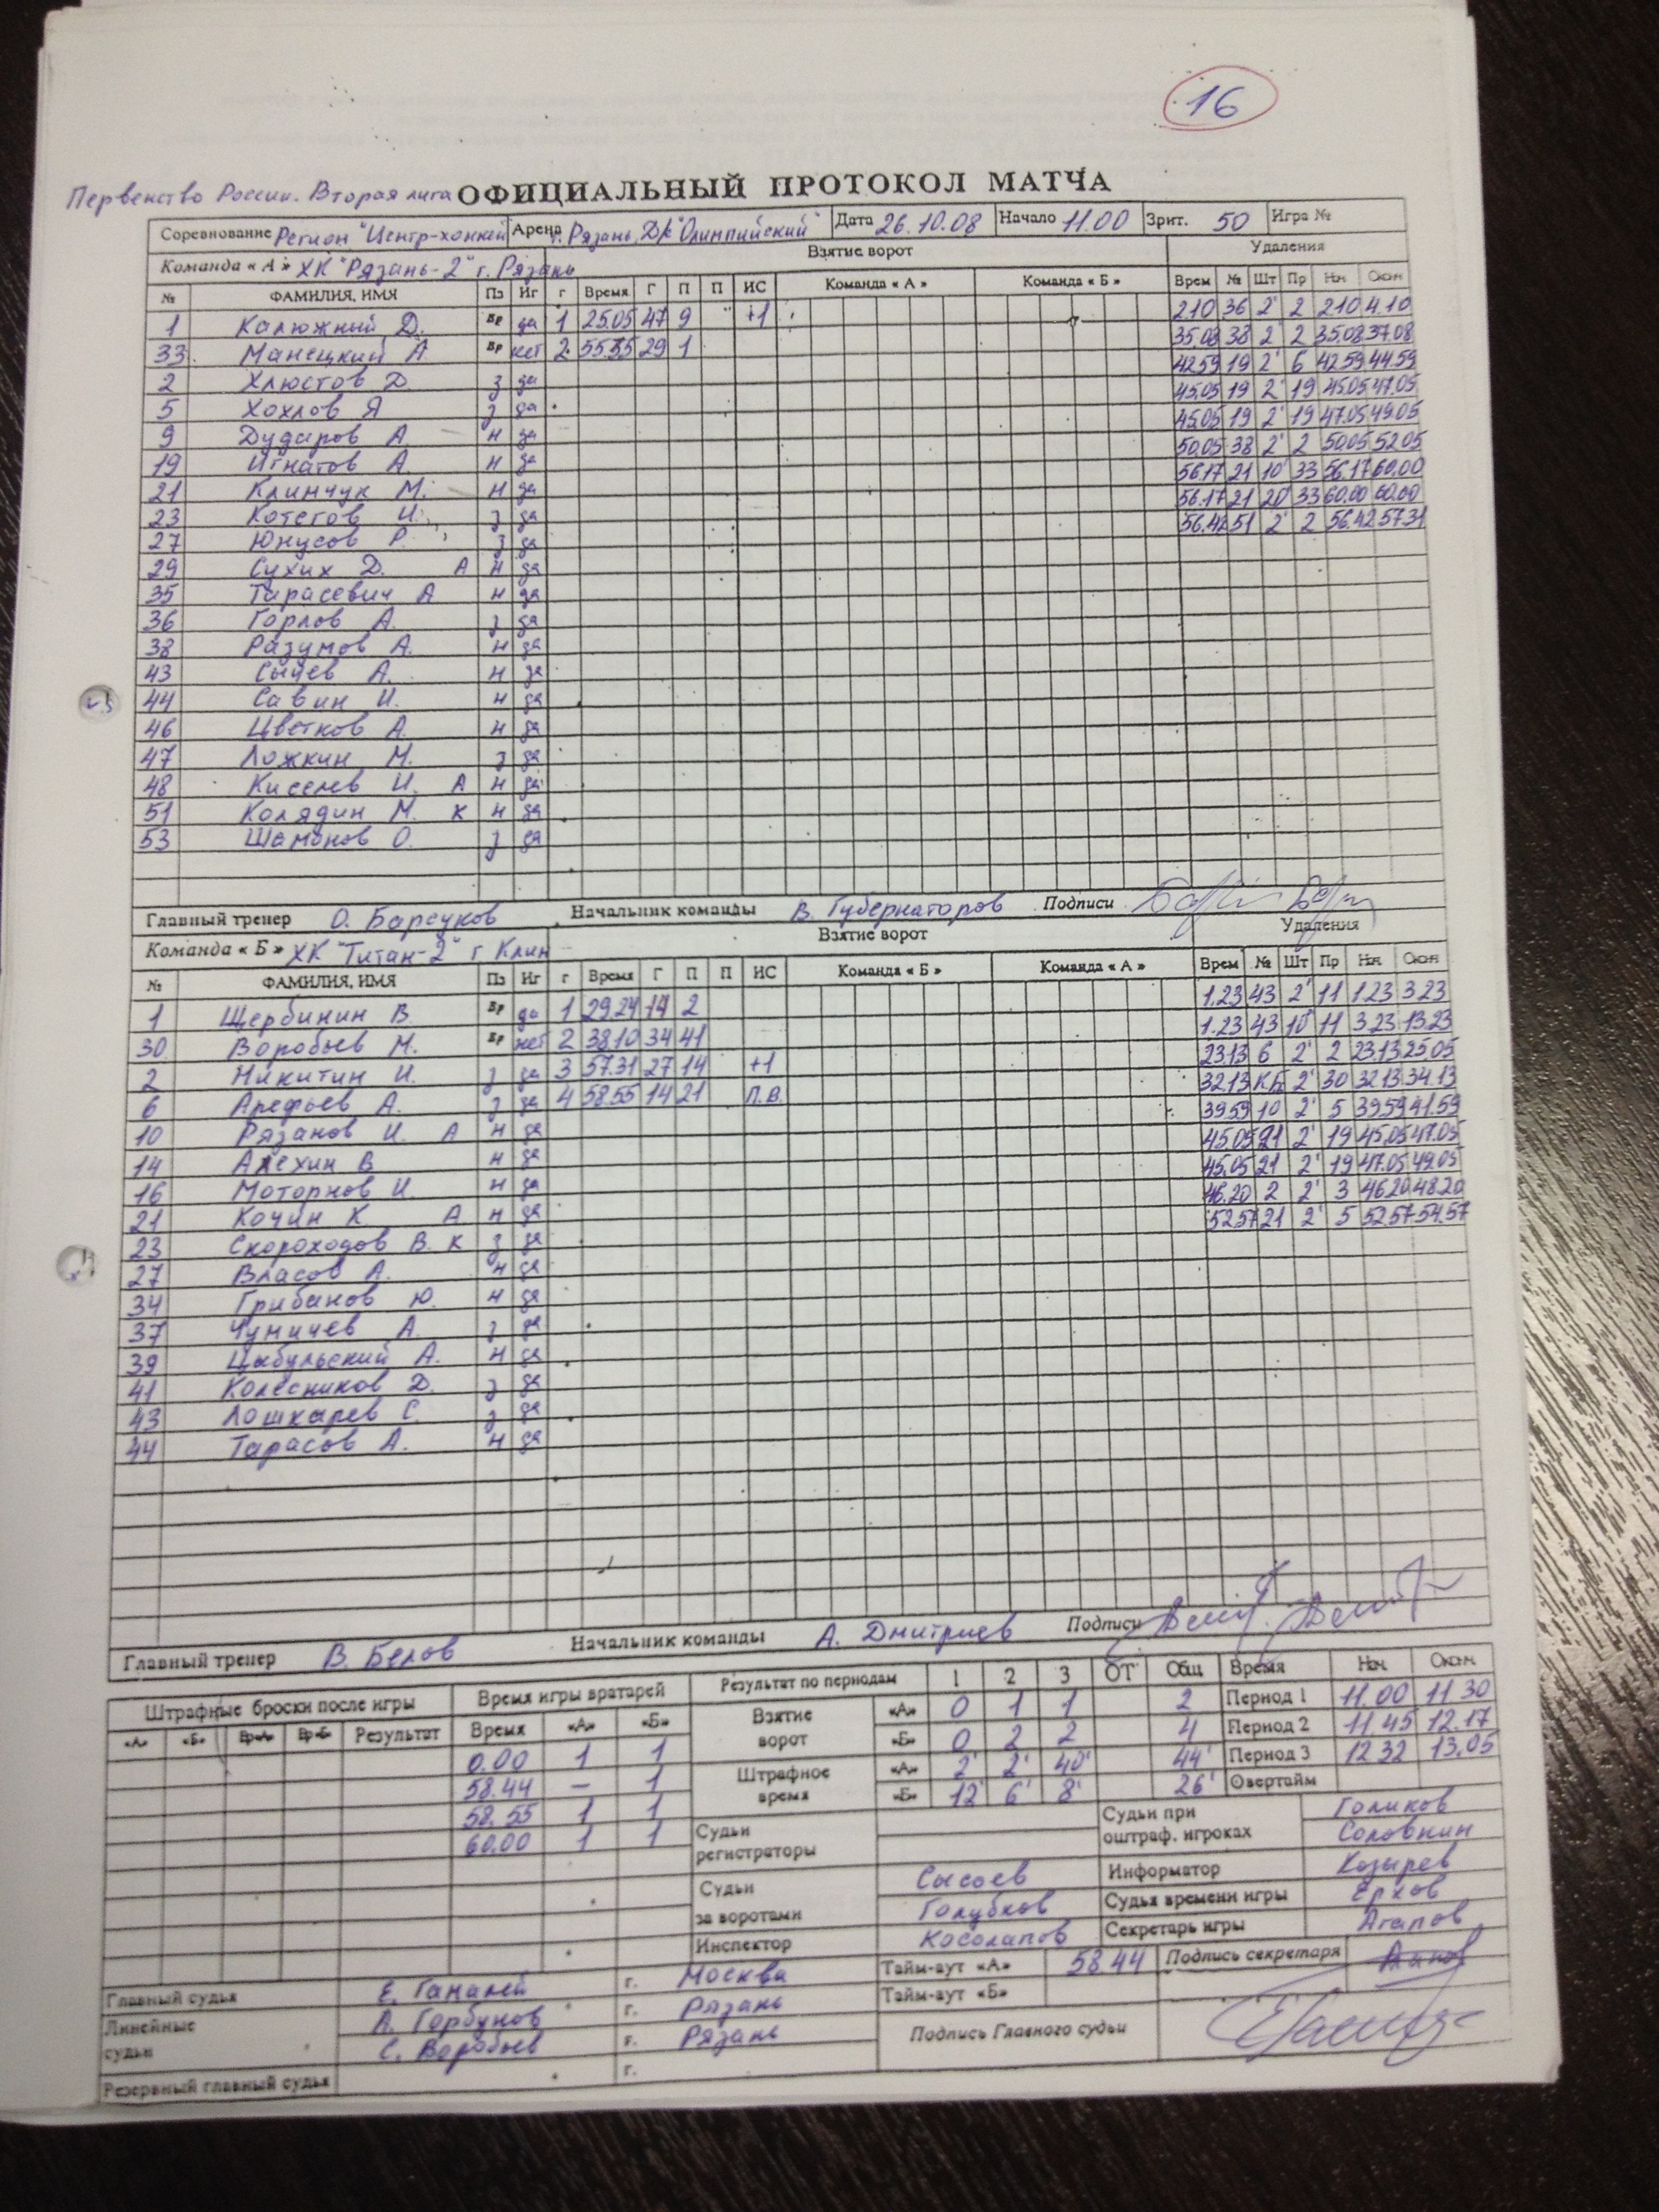 16
Первенство России. Вторая лига ОФИЦИАЛЬНЫЙ ПРОТОКОЛ МАТЧА
Соревнование Регион "Центр-хоккей" Арена г. Рязань, ДС "Олимпийский" Дата 26.10.08 Начало 11.00 Зрит. 50 Игра №
Команда « А » ХК "Рязань-2" г. Рязань Взятие ворот Удаления
№ ФАМИЛИЯ, ИМЯ Пз Иг г Время Г П П ИС Команда « А » Команда « Б » Врем № Шт Пр Нач Оконч
1 Калюжный Д. Вр да 1 25.05 47 9 +1 2.10 36 2' 2 2.10 4.10
33 Манецкий А Вр нет 2 55.35 29 1 35.08 38 2' 2 35.08 37.08
2 Хлюстов Д з да 42.59 19 2' 6 42.59 44.59
5 Хохлов Я з да 45.05 19 2' 19 45.05 47.05
9 Дударов А. н да 45.05 19 2' 19 47.05 49.05
19 Игнатов А. н да 50.05 38 2' 2 50.05 52.05
21 Климчук М. н да 56.17 21 10' 33 56.17 60.00
23 Котегов И. з да 56.17 21 20' 33 60.00 60.00
27 Юнусов Р. з да 56.42 51 2' 2 56.42 57.31
29 Сухих Д. А н да
35 Тарасевич А н да
36 Горлов А. з да
38 Разумов А. н да
43 Сычев А. н да
44 Савин И. н да
46 Цветков А. н да
47 Ложкин М. з да
48 Киселев И. А н да
51 Колядин М. К н да
53 Шамонов О. з да
Главный тренер О. Барсуков Начальник команды В. Губернаторов Подписи
Команда « Б » ХК "Титан-2" г Клин Взятие ворот Удаления
№ ФАМИЛИЯ, ИМЯ Пз Иг г Время Г П П ИС Команда « Б » Команда « А » Врем № Шт Пр Нач Оконч
1 Щербинин В Вр да 1 29.24 14 2 1.23 43 2' 11 1.23 3.23
30 Воробьев М. Вр нет 2 38.10 34 41 1.23 43 10' 11 3.23 13.23
2 Никитин И. з да 3 57.31 27 14 +1 23.13 6 2' 2 23.13 25.05
6 Арефьев А. з да 4 58.55 14 21 п.в. 32.13 КБ 2' 30 32.13 34.13
10 Рязанов И. А н да 39.59 10 2' 5 39.59 41.59
14 Алехин В н да 45.05 21 2' 19 45.05 47.05
16 Моторнов И. н да 45.05 21 2' 19 47.05 49.05
21 Кочин К. А н да 46.20 2 2' 3 46.20 48.20
23 Скороходов В. К з да 52.57 21 2' 5 52.57 54.57
27 Власов А. н да
34 Грибанов Ю. н да
37 Чумичев А. з да
39 Цыбульский А. н да
41 Колесников Д. з да
43 Лошкарев С. з да
44 Тарасов А. н да
Главный тренер В. Белов Начальник команды А. Дмитриев Подписи
Штрафные броски после игры Время игры вратарей Результат по периодам 1 2 3 ОТ Общ Время Нач. Оконч.
«А» «Б» Вр«А» Вр«Б» Результат Время «А» «Б» Взятие ворот «А» 0 1 1 2 Период 1 11.00 11 30
0.00 1 1 «Б» 0 2 2 4 Период 2 11.45 12.17
58.44 – 1 Штрафное время «А» 2' 2' 40' 44' Период 3 12 32 13.05
58.55 1 1 «Б» 12' 6' 8' 26' Овертайм
60.00 1 1 Судьи регистраторы Судьи при оштраф. игроках Голиков
Соловкин
Судьи за воротами Сысоев Информатор Козырев
Голубков Судья времени игры Ерхов
Инспектор Косолапов Секретарь игры Агапов
Тайм-аут «А» 58.44 Подпись секретаря
Главный судья Е. Гамалей г. Москва Тайм-аут «Б»
Линейные судьи А. Горбунов г. Рязань Подпись Главного судьи
С. Воробьев г. Рязань
Резервный главный судья г.